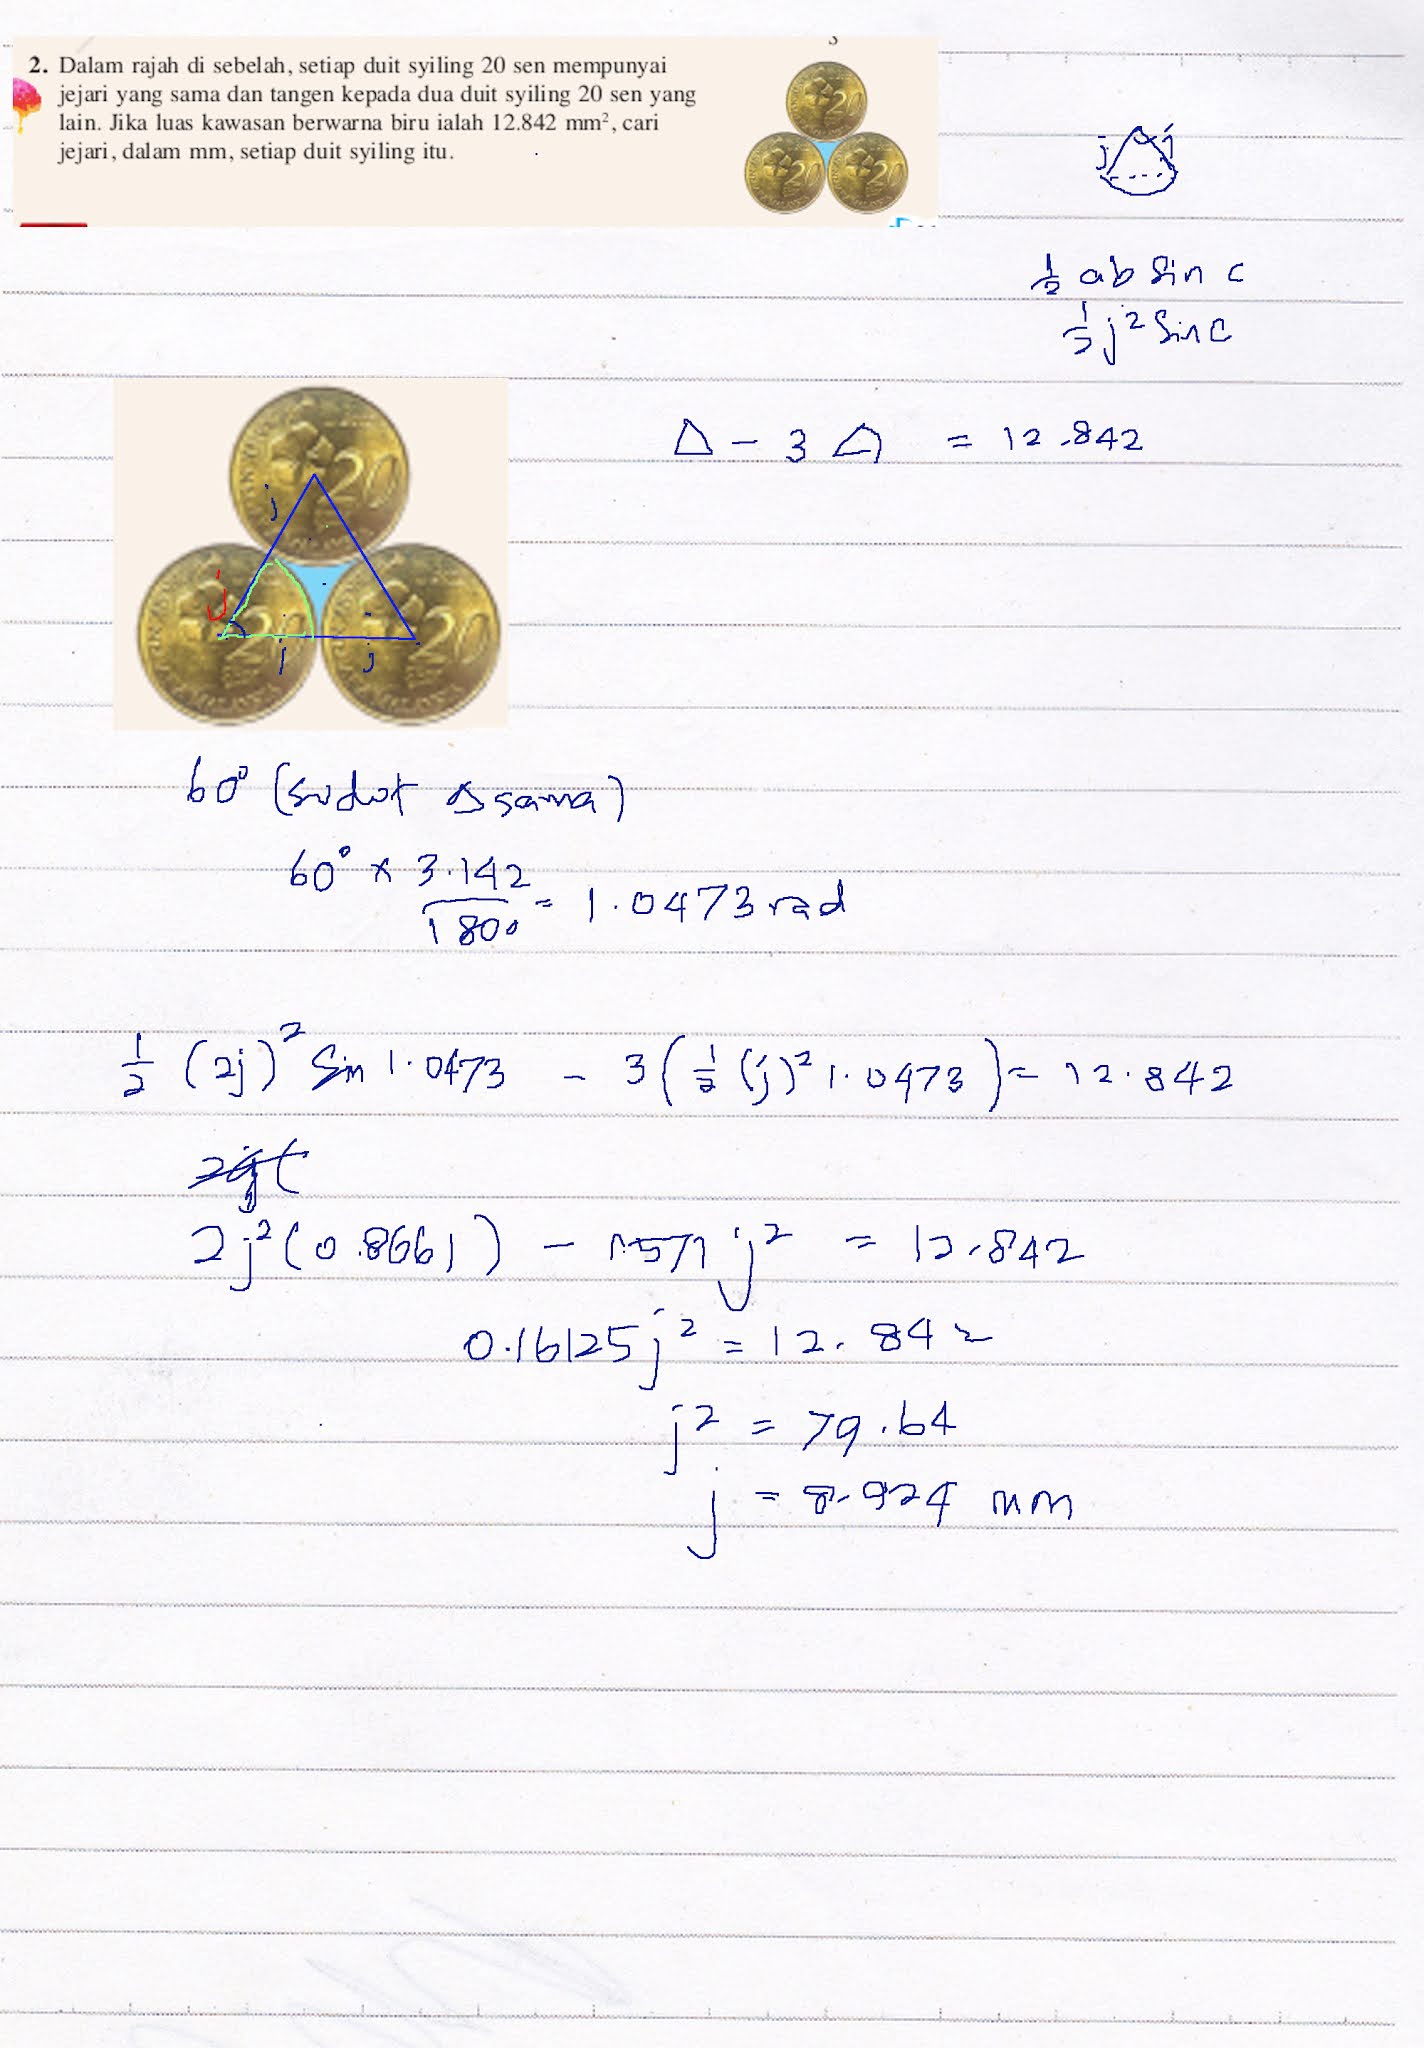 2. Dalam rajah di sebelah, setiap duit syiling 20 sen mempunyai
jejari yang sama dan tangen kepada dua duit syiling 20 sen yang
lain. Jika luas kawasan berwarna biru ialah 12.842 mm², cari
jejari, dalam mm, setiap duit syiling itu.
20
20
20
j j
½ ab Sin c
½ j² Sin C
△ - 3 ⌓ = 12.842
20
j
j
20
20
j
j
60° (sudut △ sama)
60° × 3.142/180° = 1.0473 rad
½ (2j)² Sin 1.0473 - 3(½ (j)² 1.0473) = 12.842
2j²(0.8661) - 1.571 j² = 12.842
0.16125 j² = 12.842
j² = 79.64
j = 8.924 mm